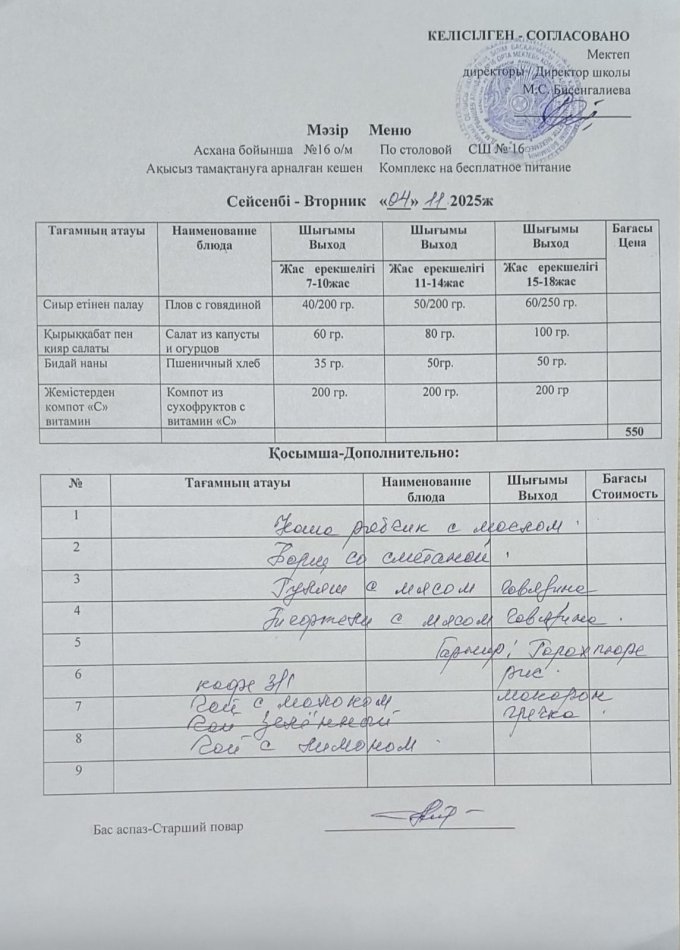 КЕЛІСІЛГЕН - СОГЛАСОВАНО
Мектеп
директоры / Директор школы
М.С. Бисенгалиева
Мәзір Меню
Асхана бойынша №16 о/м По столовой СШ № 16
Ақысыз тамақтануға арналған кешен Комплекс на бесплатное питание
Сейсенбі - Вторник «04» 11 2025ж
Тағамның атауы Наименование блюда Шығымы Выход Шығымы Выход Шығымы Выход Бағасы Цена
Жас ерекшелігі 7-10жас Жас ерекшелігі 11-14жас Жас ерекшелігі 15-18жас
Сиыр етінен палау Плов с говядиной 40/200 гр. 50/200 гр. 60/250 гр.
Қырыққабат пен қияр салаты Салат из капусты и огурцов 60 гр. 80 гр. 100 гр.
Бидай наны Пшеничный хлеб 35 гр. 50гр. 50 гр.
Жемістерден компот «С» витамин Компот из сухофруктов с витамин «С» 200 гр. 200 гр. 200 гр
550
Қосымша-Дополнительно:
№ Тағамның атауы Наименование блюда Шығымы Выход Бағасы Стоимость
1 Каша с маслом
2 Борщ со сметаной
3 Гуляш с мясом говядина
4 с мясом говядина
5 Гарнир: Горох пюре
6 рис
кофе 3/1
7 Чай с молоком макарон
Чай зелённый гречка
8 Чай с лимоном
9
Бас аспаз-Старший повар